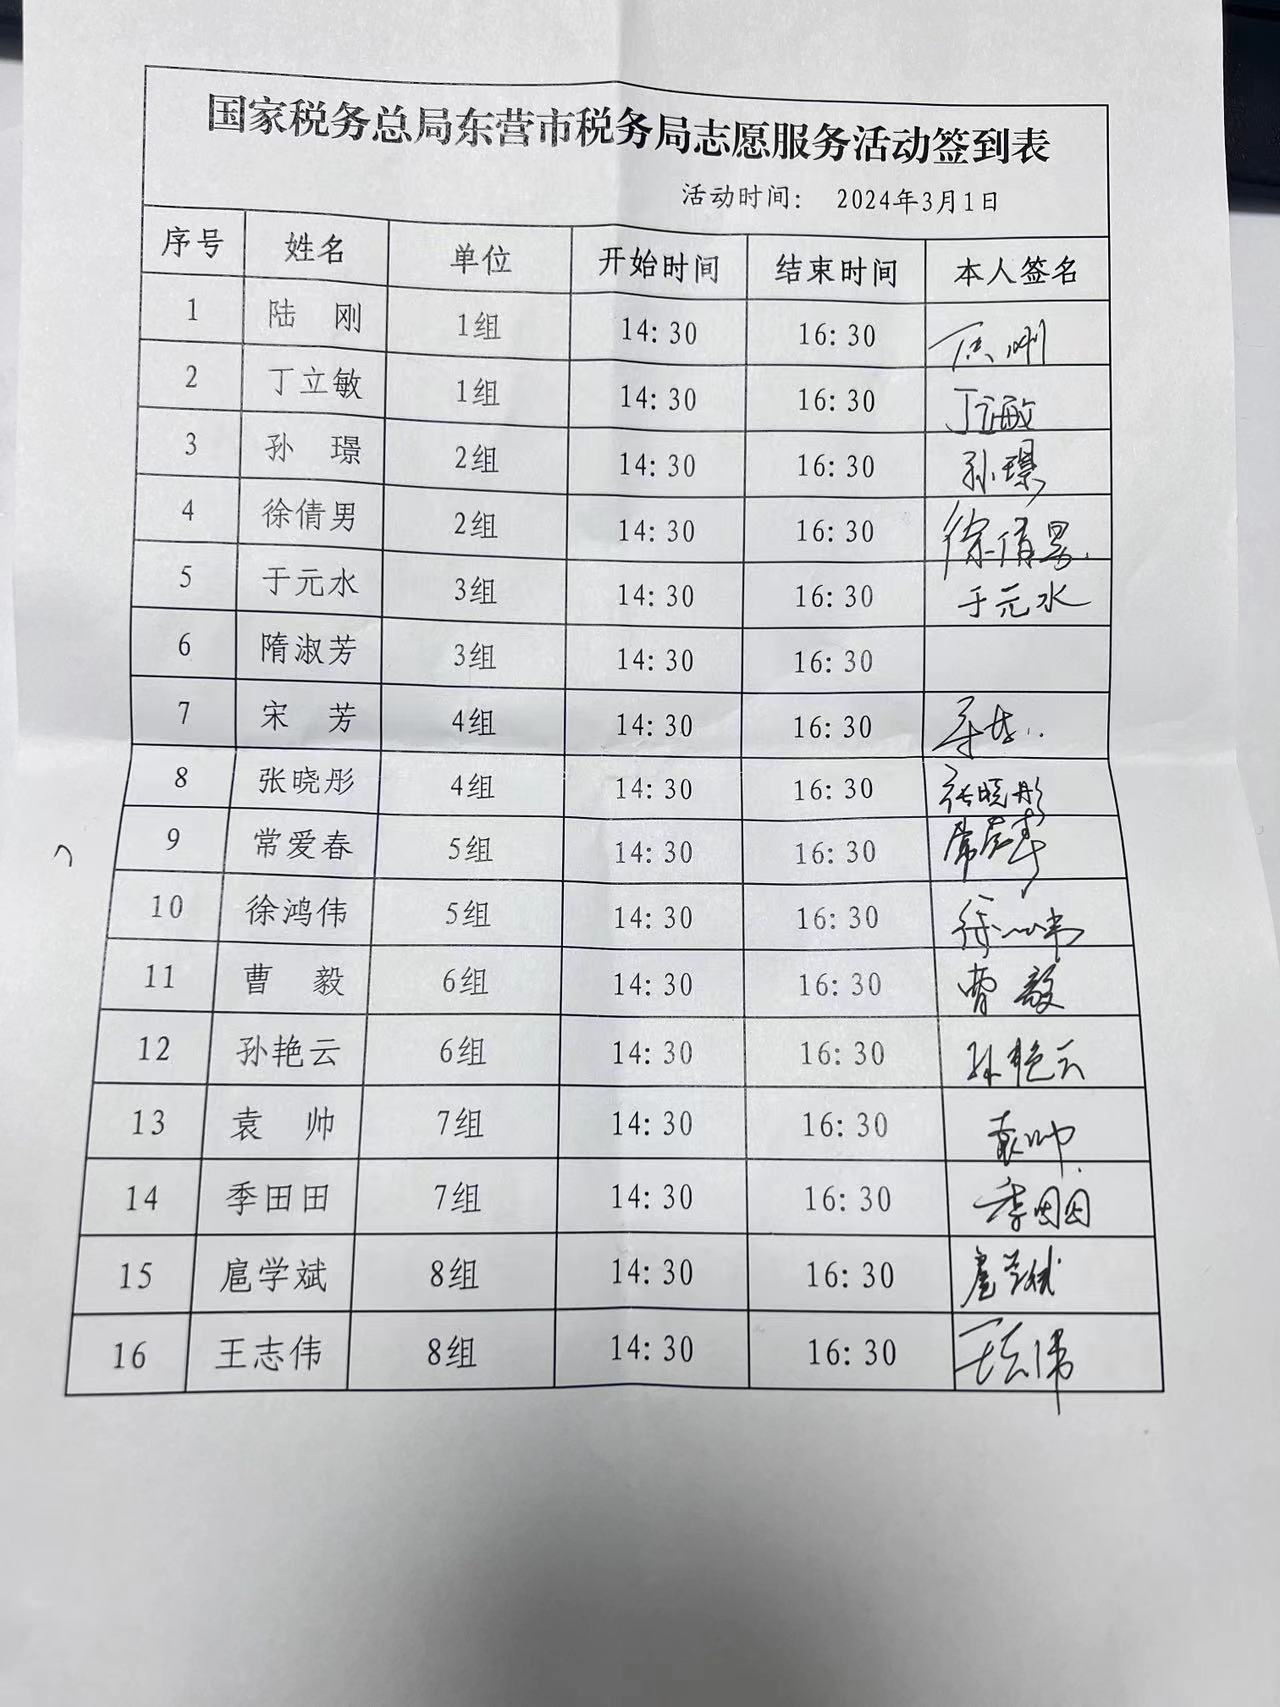 国家税务总局东营市税务局志愿服务活动签到表
活动时间： 2024年3月1日
序号 姓名 单位 开始时间 结束时间 本人签名
1 陆 刚 1组 14:30 16:30
2 丁立敏 1组 14:30 16:30 丁立敏
3 孙 璟 2组 14:30 16:30 孙璟
4 徐倩男 2组 14:30 16:30 徐倩男
5 于元水 3组 14:30 16:30 于元水
6 隋淑芳 3组 14:30 16:30
7 宋 芳 4组 14:30 16:30
8 张晓彤 4组 14:30 16:30 张晓彤
9 常爱春 5组 14:30 16:30 常爱春
10 徐鸿伟 5组 14:30 16:30 徐鸿伟
11 曹 毅 6组 14:30 16:30 曹毅
12 孙艳云 6组 14:30 16:30 孙艳云
13 袁 帅 7组 14:30 16:30 袁帅
14 季田田 7组 14:30 16:30 季田田
15 扈学斌 8组 14:30 16:30 扈学斌
16 王志伟 8组 14:30 16:30 王志伟